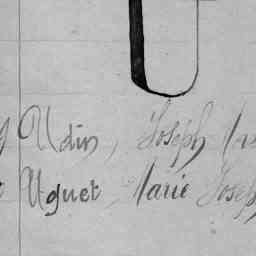 U
Udin, Joseph
Uguet, Marie Joseph